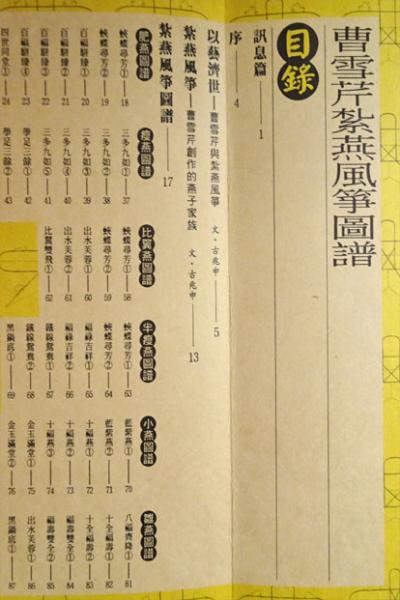 曹雪芹紮燕風箏圖譜
目錄
訊息篇——1
序——4
以藝濟世——曹雪芹與紮燕風箏 文．古兆申——5
紮燕風箏——曹雪芹創作的燕子家族 文．古兆申——13
紮燕風箏圖譜——17
肥燕圖譜
蛺蝶尋芳①——18
蛺蝶尋芳②——19
百福騈臻①——20
百福騈臻②——21
百福騈臻③——22
百福騈臻④——23
四世同堂①——24
瘦燕圖譜
三多九如①——37
三多九如②——38
三多九如③——39
三多九如④——40
三多九如⑤——41
學足三餘①——42
學足三餘②——43
比翼燕圖譜
蛺蝶尋芳①——58
蛺蝶尋芳②——59
出水芙蓉①——60
出水芙蓉②——61
比翼雙飛①——62
半瘦燕圖譜
蛺蝶尋芳①——63
蛺蝶尋芳②——64
福祿吉祥①——65
福祿吉祥②——66
鐵線鴛鴦①——67
鐵線鴛鴦②——68
黑鍋底①——69
小燕圖譜
藍紫燕①——70
藍紫燕②——71
十福燕①——72
十福燕②——73
十福燕③——74
金玉滿堂①——75
金玉滿堂②——76
雛燕圖譜
八福齊降①——81
十全福壽①——82
十全福壽②——83
福壽雙全①——84
福壽雙全②——85
出水芙蓉①——86
黑鍋底①——87